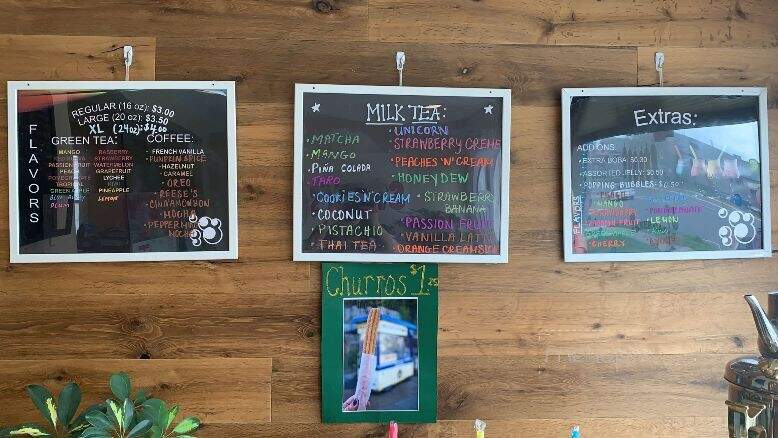 FLAVORS
REGULAR (16 oz): $3.00
LARGE (20 oz): $3.50
XL (24oz): $4.00
GREEN TEA:
MANGO
PASSION FRUIT
PEACH
POMEGRANATE
TROPICAL
GREEN APPLE
PLUM
RASBERRY
STRAWBERRY
WATERMELON
GRAPEFRUIT
LYCHEE
KIWI
PINEAPPLE
LEMONE
COFFEE:
FRENCH VANILLA
PUMPKIN SPICE
HAZELNUT
CARAMEL
OREO
REESE'S
CINNAMONBON
MOCHA
PEPPERMINT
MOCHA
MILK TEA:
MATCHA
MANGO
PIÑA COLADA
TARO
COOKIES'N'CREAM
COCONUT
PISTACHIO
THAI TEA
UNICORN
STRAWBERRY CREME
PEACHES 'N' CREAM
HONEYDEW
STRAWBERRY
BANANA
PASSION FRUIT
VANILLA LATTE
ORANGE CREAMSICLE
Extras:
ADD-ONS:
EXTRA BOBA: $0.50
ASSORTED JELLY: $0.50
POPPING BUBBLES: $0.50
FLAVORS
MANGO
STRAWBERRY
PASSION FRUIT
CHERRY
POMEGRANATE
LEMON
KIWI
LYCHEE
Churros $1.25